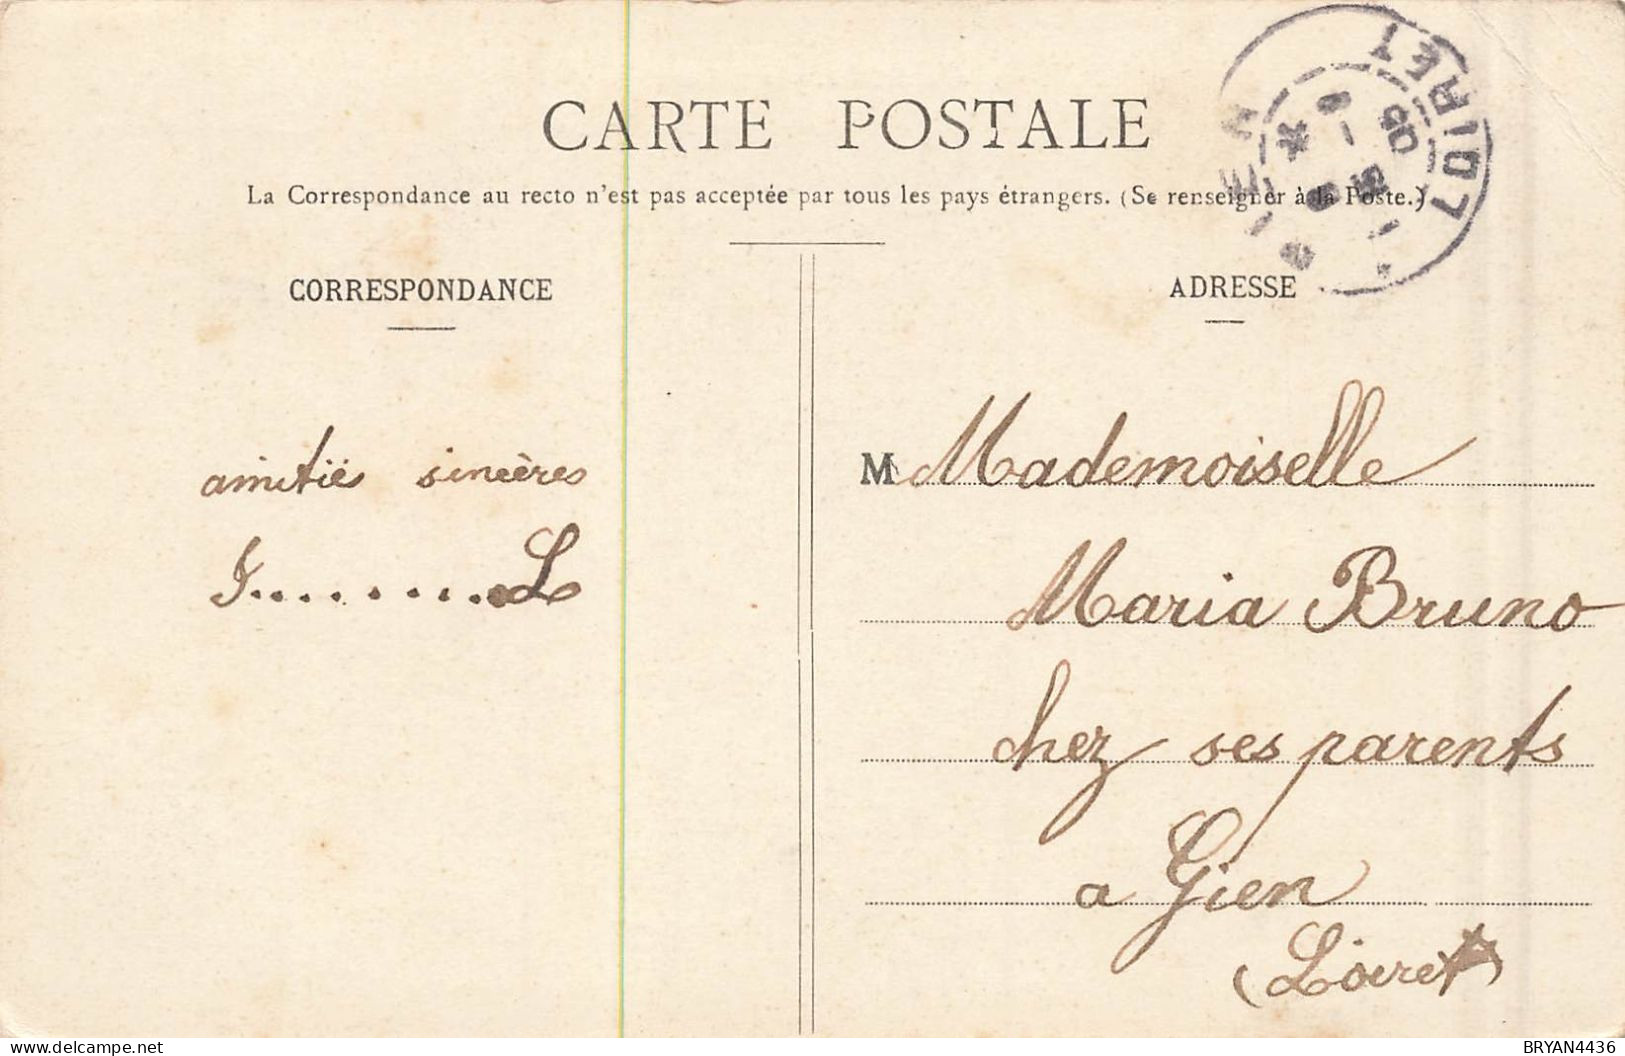 CARTE POSTALE
La Correspondance au recto n'est pas acceptée par tous les pays étrangers. (Se renseigner à la Poste.)
CORRESPONDANCE
ADRESSE
GIEN
LOIRET
amitiés sincères
L
M Mademoiselle
Maria Bruno
chez ses parents
a Gien
(Loiret)
delcampe.net
BRYAN4436